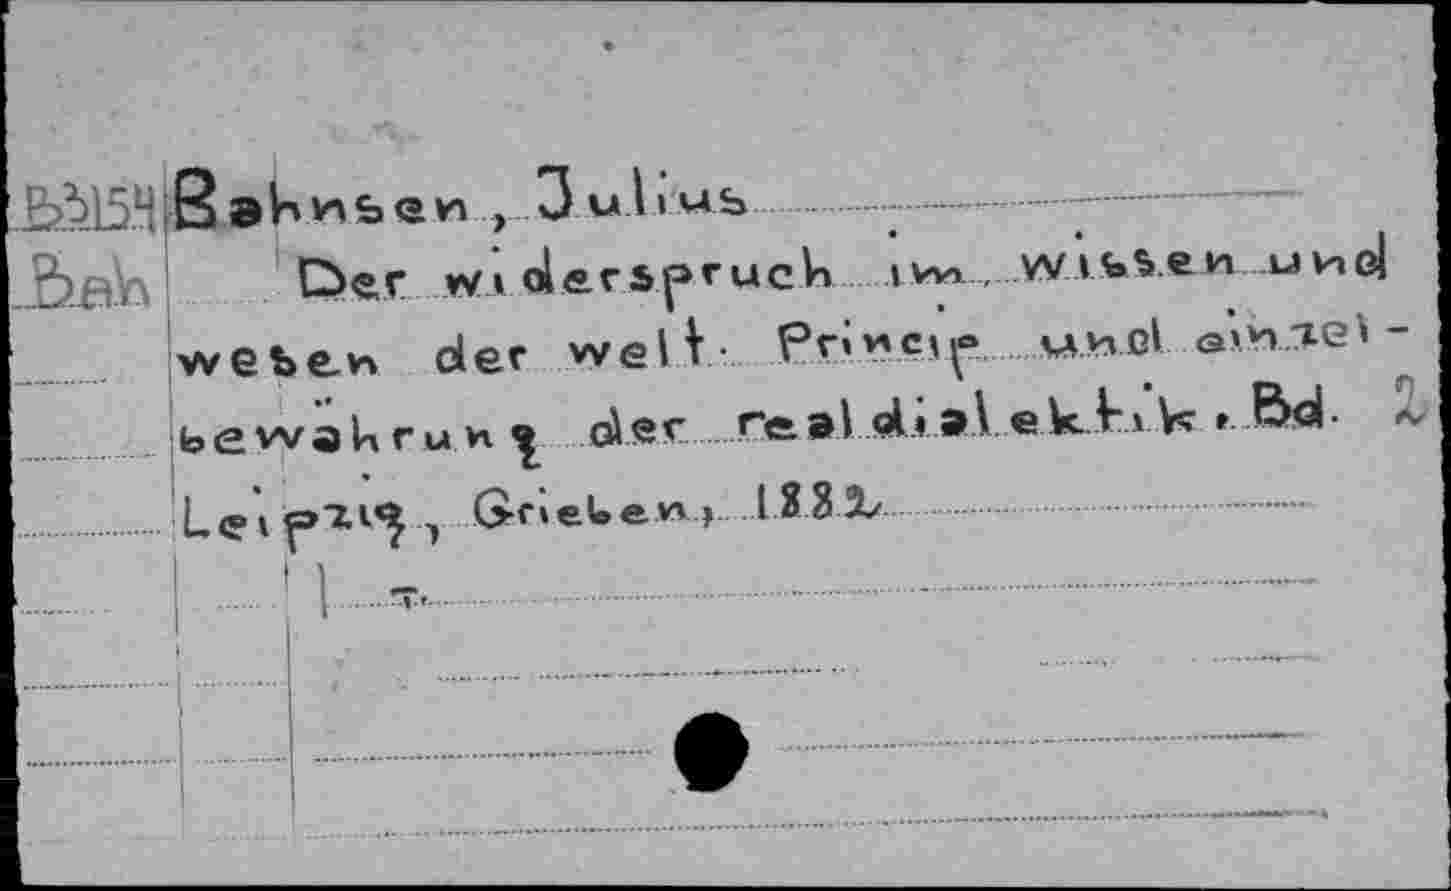 B3154 Bahnsen, Julius
Bah Der widerspruch im wissen und
wesen der welt. Princip und einzel-
bewährung der realdialektik. Bd. 2
Leipzig, Grieben, 1882
1 T.